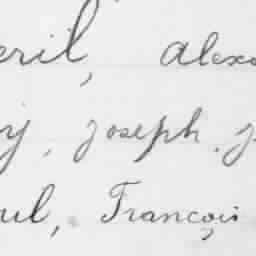 eril, Alexa
y, Joseph. J
ul, François